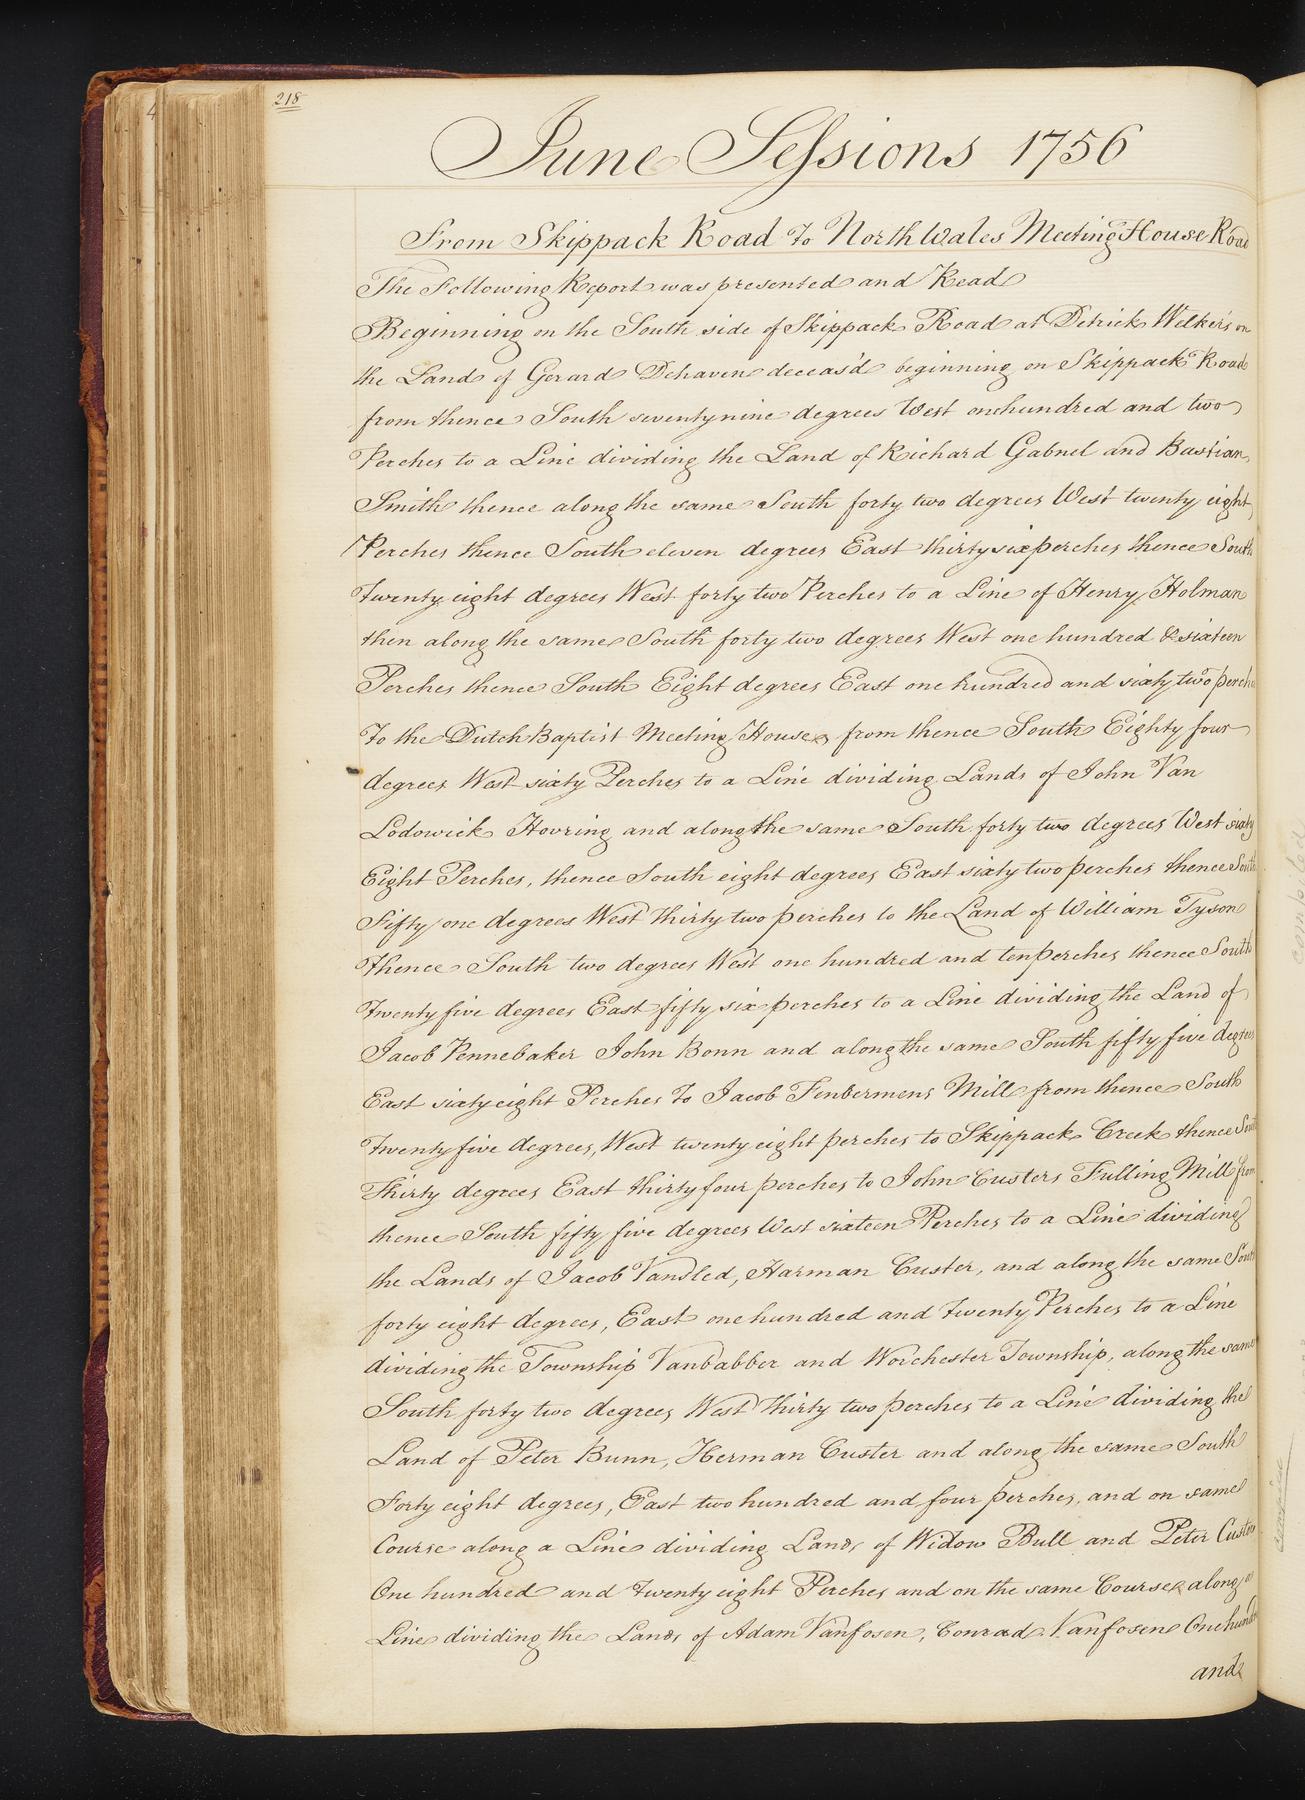 218
June Sessions 1756
From Skippack Road to North Wales Meeting House Road
The Following Report was presented and Read
Beginning on the South side of Skippack Road at Detrick Welker's on
the Land of Gerard Dehaven deceas'd beginning on Skippack Road
from thence South seventy nine degrees West one hundred and two
Perches to a Line dividing the Land of Richard Gabnel and Bastian
Smith thence along the same South forty two degrees West twenty eight
Perches thence South eleven degrees East thirty six perches thence South
twenty eight degrees West forty two Perches to a Line of Henry Holman
then along the same South forty two degrees West one hundred & sixteen
Perches thence South Eight degrees East one hundred and sixty two perches
To the Dutch Baptist Meeting House from thence South Eighty four
degrees West sixty Perches to a Line dividing Lands of John Van
Lodowick Hovring and along the same South forty two degrees West sixty
Eight Perches, thence South eight degrees East sixty two perches thence South
Fifty one degrees West thirty two perches to the Land of William Tyson
thence South two degrees West one hundred and ten perches thence South
twenty five degrees East fifty six perches to a Line dividing the Land of
Jacob Pennebaker John Bonn and along the same South fifty five degrees
East sixty eight Perches To Jacob Fenbermens Mill from thence South
twenty five degrees, West twenty eight perches to Skippack Creek thence South
Thirty degrees East thirty four perches to John Custers Fulling Mill from
thence South fifty five degrees West sixteen Perches to a Line dividing
the Lands of Jacob Vansled, Harman Custer, and along the same South
forty eight degrees, East one hundred and twenty Perches to a Line
dividing the Township Vanbabber and Worchester Township, along the same
South forty two degrees West thirty two perches to a Line dividing the
Land of Peter Bunn, Herman Custer and along the same South
Forty eight degrees, East two hundred and four perches, and on same
Course along a Line dividing Lands of Widow Bull and Peter Custer
One hundred and twenty eight Perches and on the same Course along a
Line dividing the Lands of Adam Vanfosen, Conrad Vanfosen One hundred
and